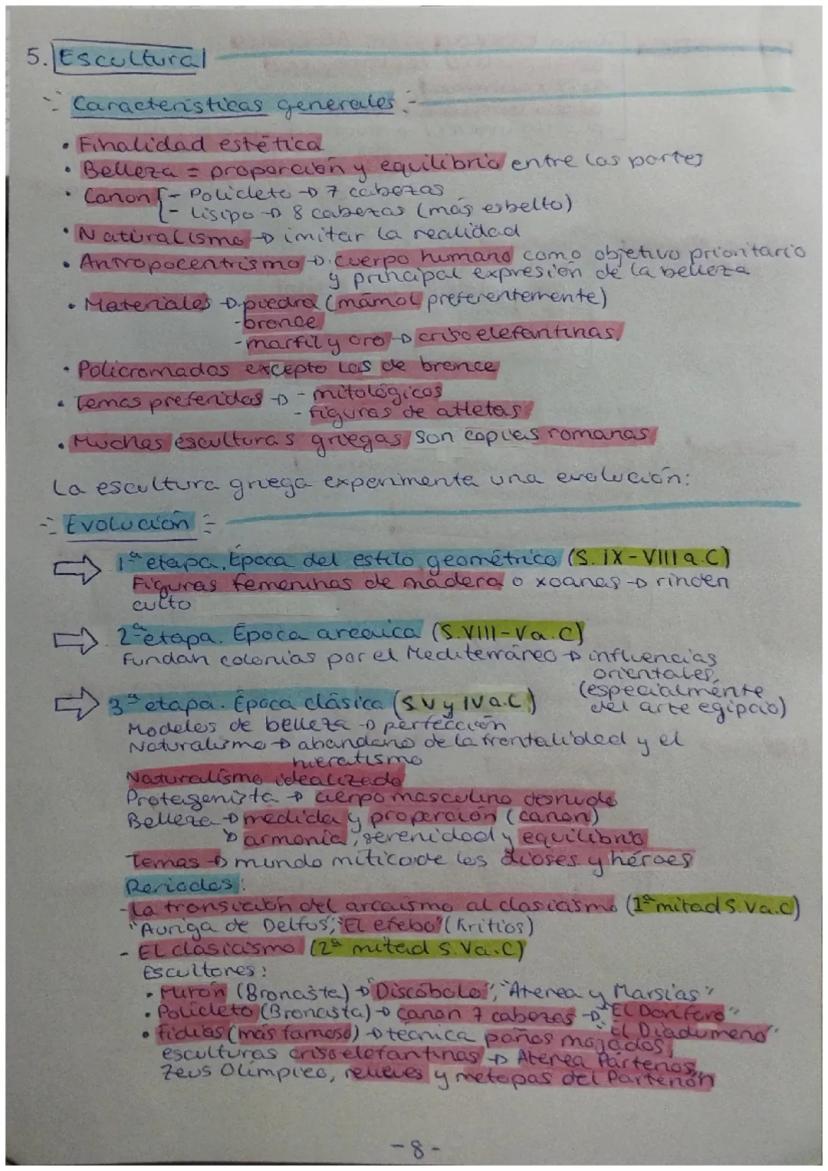 5. Escultura
Características generales
· Finalidad estética
· Belleza = proporción y equilibrio entre las partes
· Canon - Policleto → 7 cabezas
- Lisipo → 8 cabezas (más esbelto)
· Naturalismo → imitar la realidad
· Antropocentrismo → cuerpo humano como objetivo prioritario
y principal expresión de la belleza
· Materiales → piedra (mámol preferentemente)
- bronce
- marfil y oro → crisoelefantinas.
· Policromados excepto las de bronce
· Temas preferidos → - mitológicos
- figuras de atletas
· Muchas esculturas griegas son copias romanas
La escultura griega experimenta una evolución:
Evolución
⇨ 1ª etapa. Época del estilo geométrico (S. IX - VIII a.C)
Figuras femeninas de madera o xoanas → rinden
culto
⇨ 2ª etapa. Época arcaica (S. VIII - V a.C)
Fundan colonias por el Mediterráneo → influencias
orientales,
(especialmente
del arte egipcio)
⇨ 3ª etapa. Época clásica (S V y IV a.C)
Modelos de belleza → perfección
Naturalismo → abandono de la frontalidad y el
hieratismo
Naturalismo idealizado
Protagonista → cuerpo masculino desnudo
Belleza → medida y proporción (canon)
→ armonía, serenidad y equilibrio
Temas → mundo mítico de los dioses y héroes
Periodos:
- La transición del arcaísmo al clasicismo (1ª mitad S. V a.C)
"Auriga de Delfos", "El efebo" (Kritios)
- El clasicismo (2ª mitad S. V a.C)
Escultores:
· Mirón (Broncista) → "Discóbolo", "Atenea y Marsias"
· Policleto (Broncista) → canon 7 cabezas → "El Doríforo"
"El Diadumeno"
· Fidias (más famoso) → técnica paños mojados,
esculturas crisoelefantinas → Atenea Partenos,
Zeus Olímpico, relieves y metopas del Partenón
- 8 -